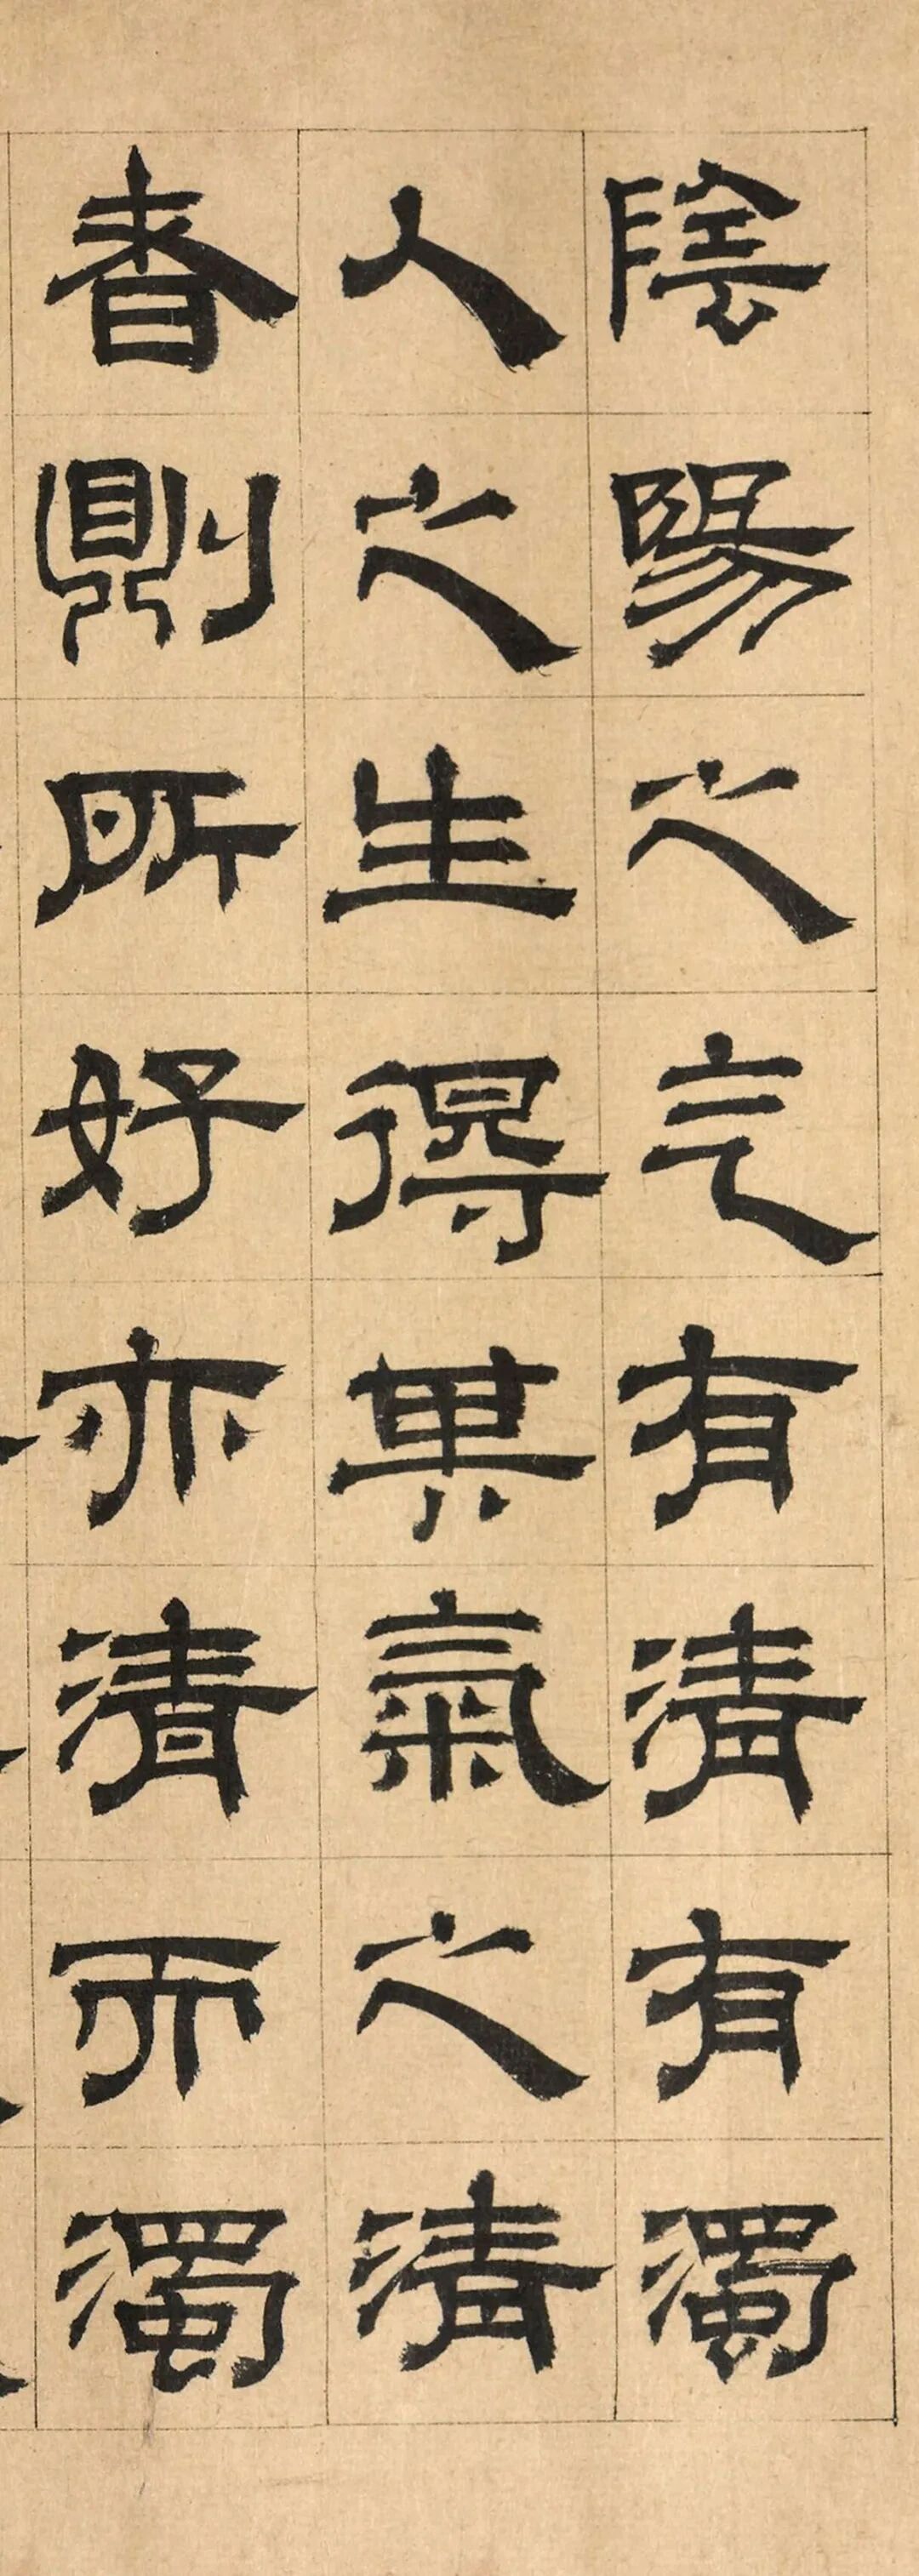 陰陽之气有清有濁
人之生得其氣之清
者則所好亦清而濁